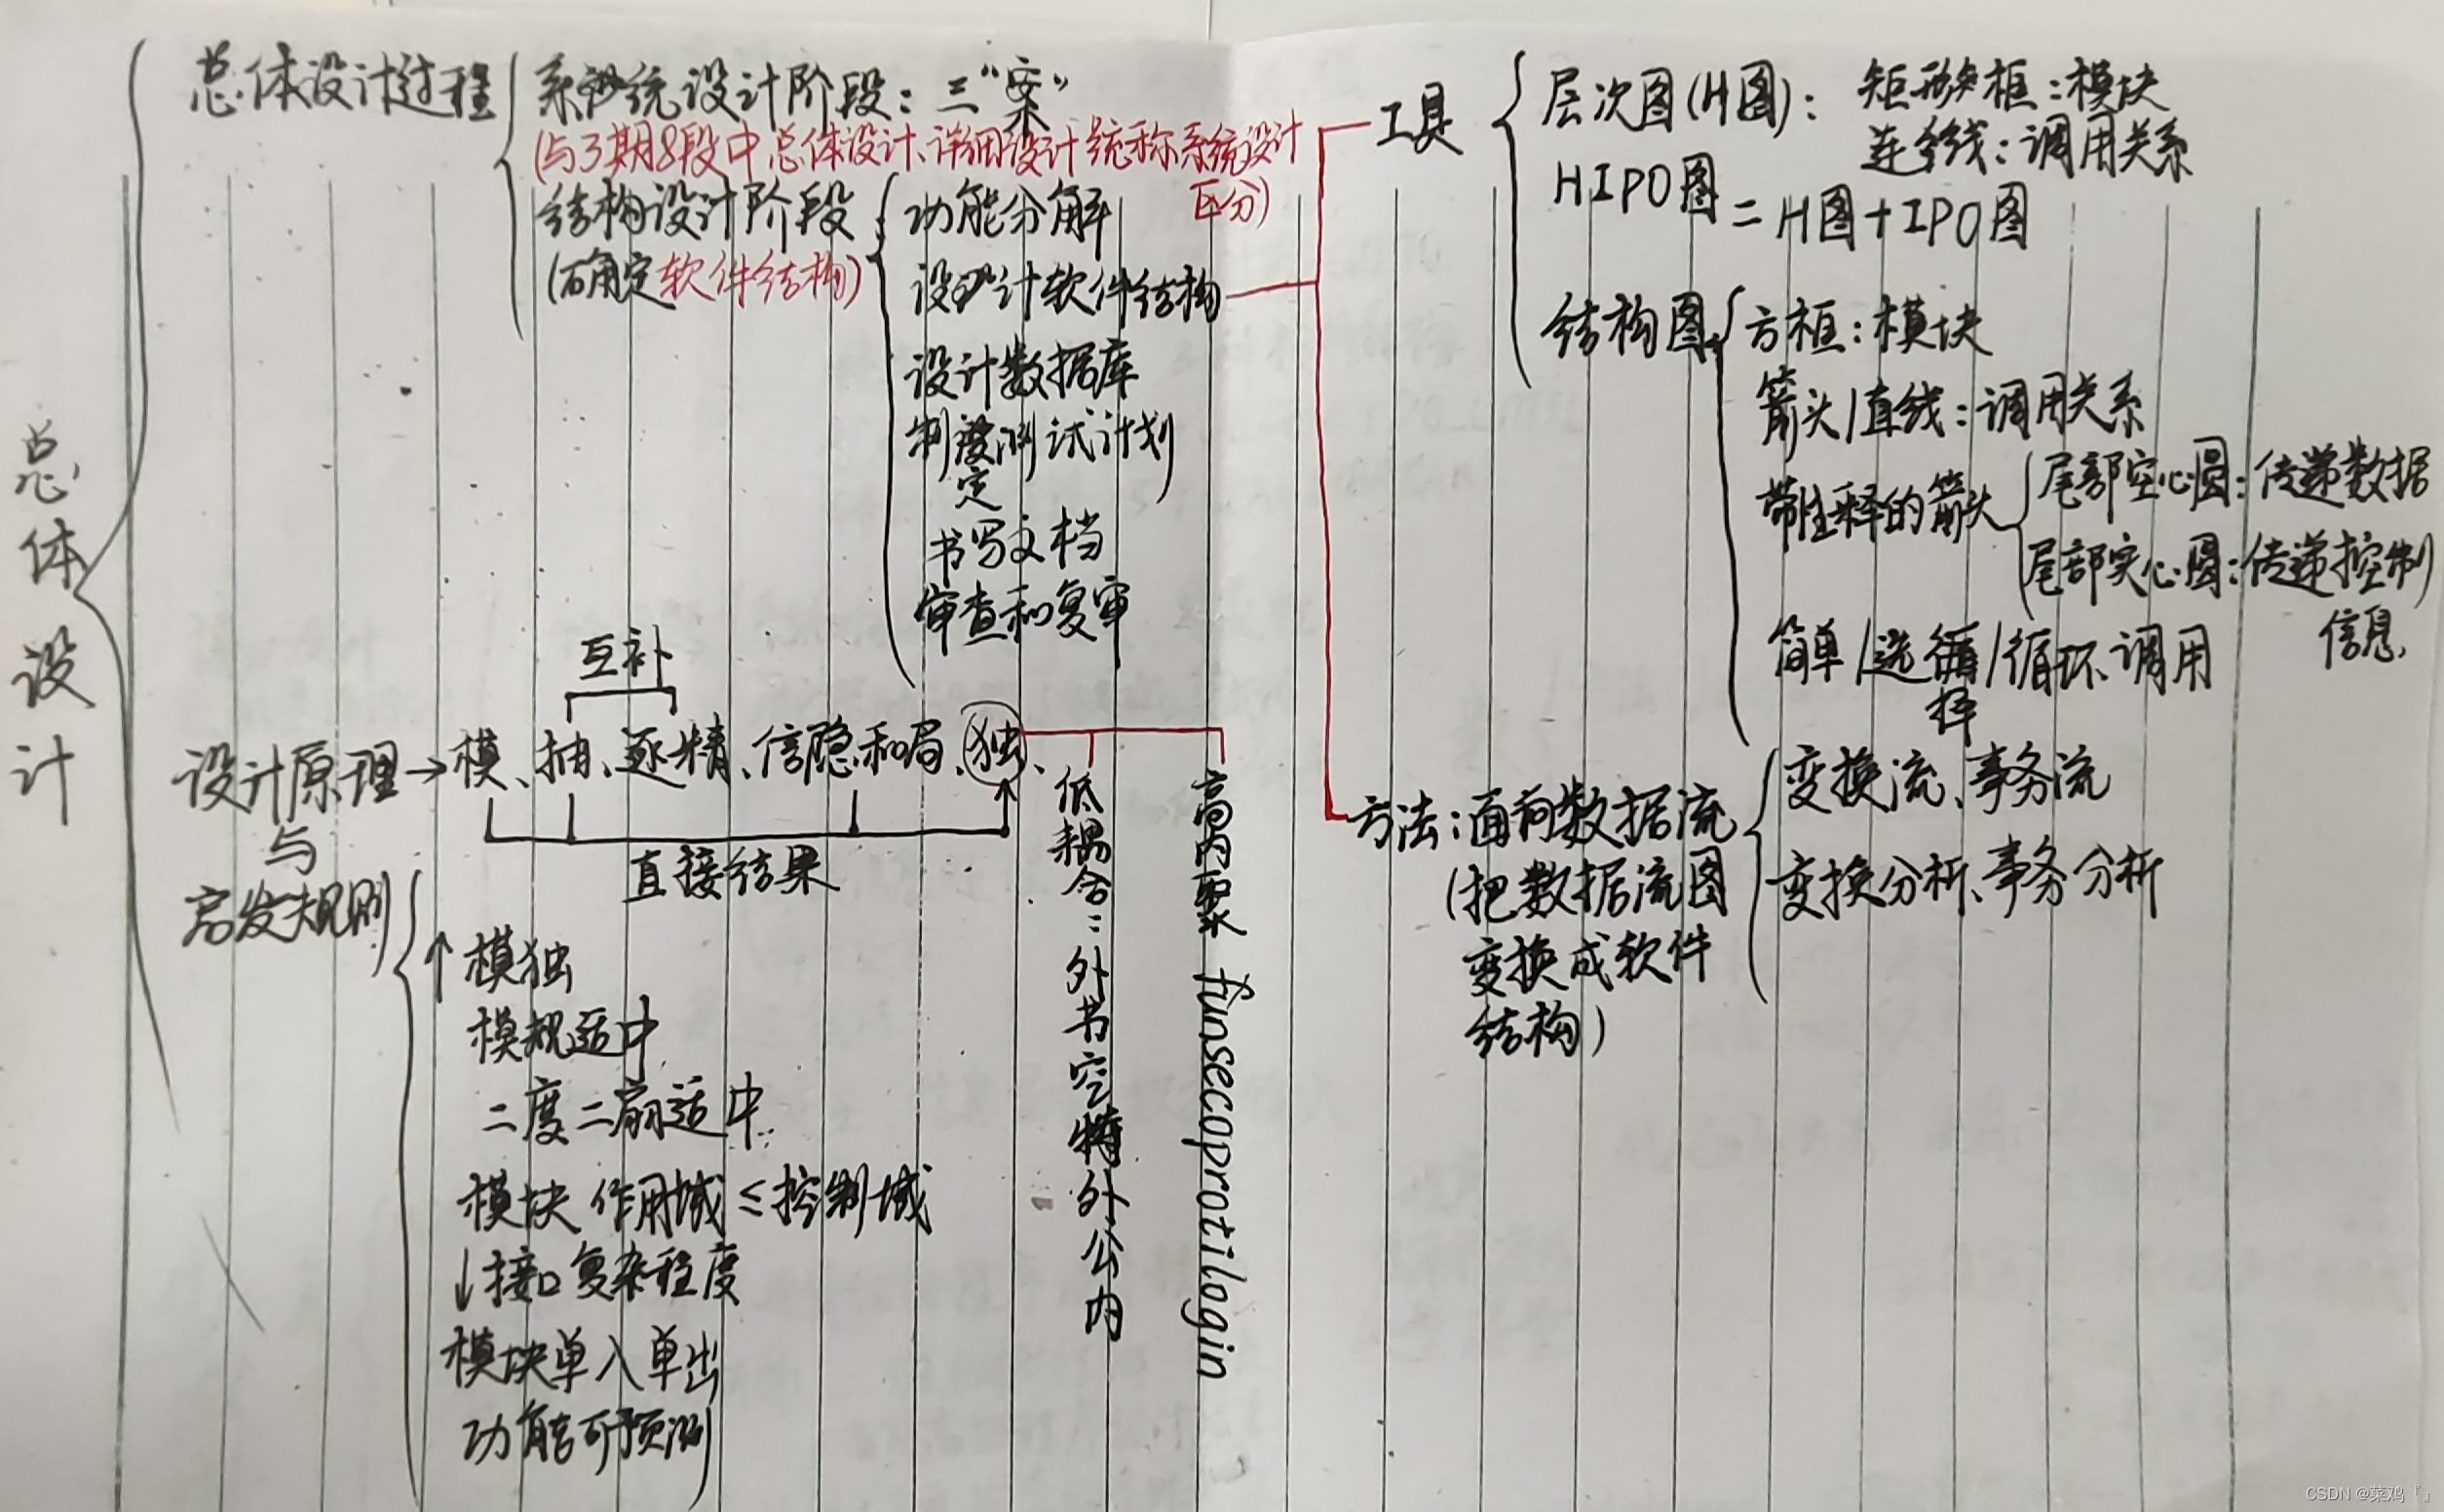 总体设计
总体设计过程
系统设计阶段：三“案”
(与3期8段中总体设计、详细设计统称系统设计
区分)
结构设计阶段
(确定软件结构)
功能分解
设计软件结构
设计数据库
制定测试计划
书写文档
审查和复审
工具
层次图(H图)：
矩形框：模块
连线：调用关系
HIPO图=H图+IPO图
结构图
方框：模块
箭头/直线：调用关系
带注释的箭头
尾部空心圆：传递数据
尾部实心圆：传递控制
信息
简单/选择/循环调用
方法：面向数据流
(把数据流图
变换成软件
结构)
变换流、事务流
变换分析、事务分析
设计原理
与
启发规则
→模、抽、逐精、信隐和局、独、
互补
直接结果
低耦合：外书空特外公内
高内聚 funsecoprotilogin
↑模独
模规适中
二度二扇适中
模块作用域≤控制域
↓接口复杂程度
模块单入单出
功能可预测
CSDN @菜鸡『』